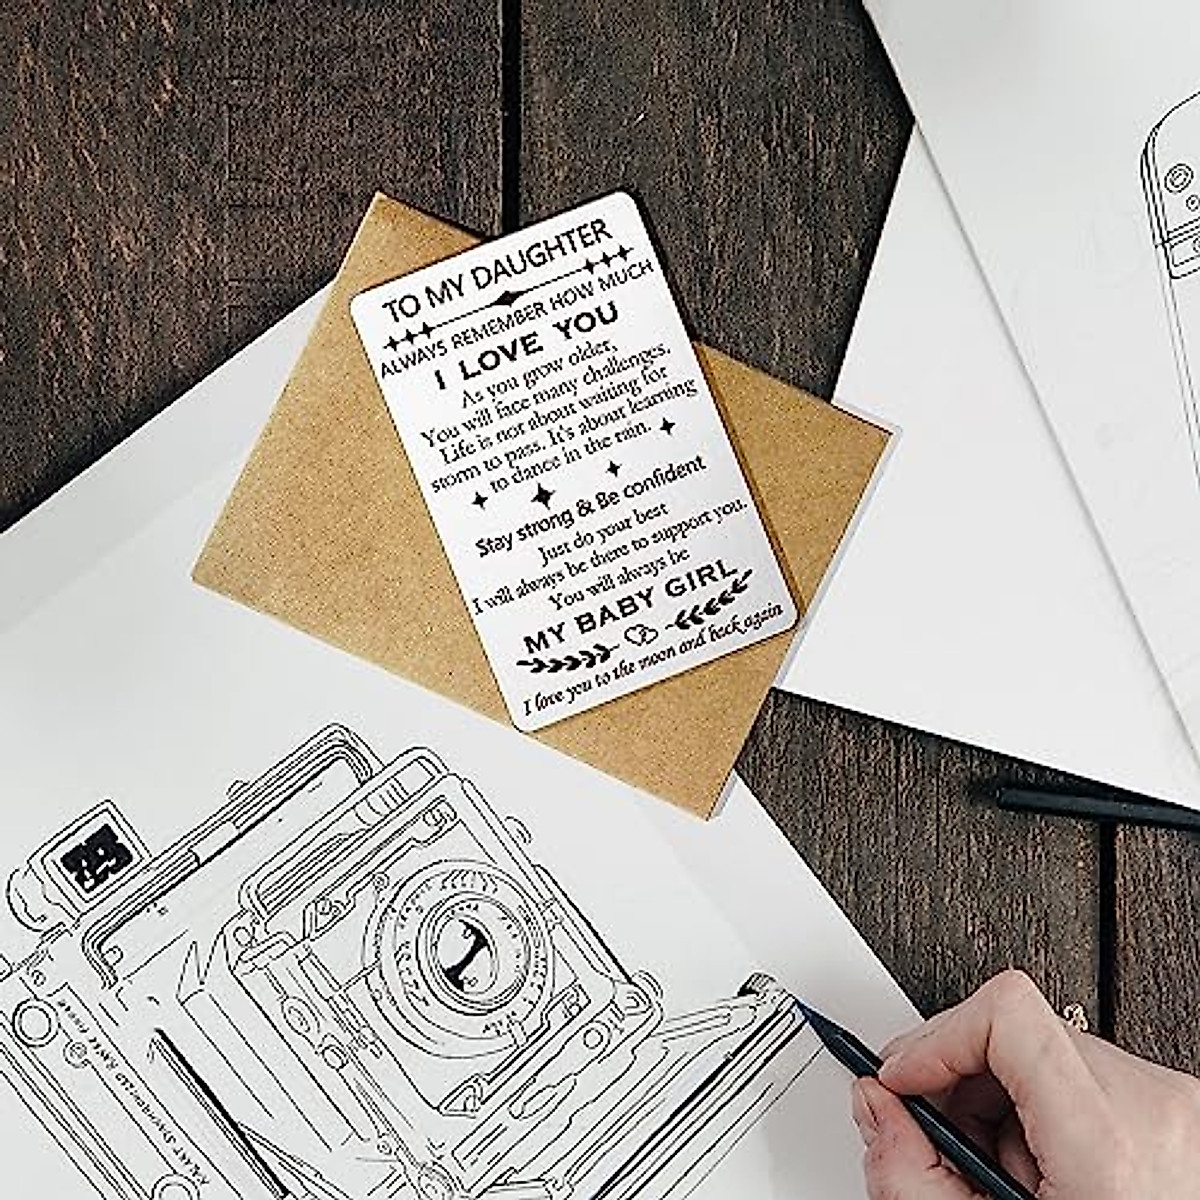 TO MY DAUGHTER
ALWAYS REMEMBER HOW MUCH
I LOVE YOU
As you grow older,
You will face many challenges,
Life is not about waiting for
storm to pass. It's about learning
to dance in the rain.
Stay strong & Be confident
Just do your best
I will always be there to support you.
You will always be
MY BABY GIRL
I love you to the moon and back again